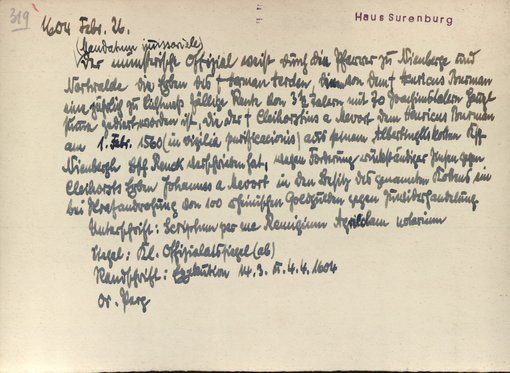 319
1604 Febr. 26.
Haus Surenburg
(Mandatum immissoriale)
Der münsterische Offizial weist durch die Pfarrer zu Nienberge und
Nortwalde die Erben des † Herman Herden, die von dem † Henricus Buerman
eine jährlich zu Lichtmeß fällige Rente von 3½ Talern mit 70 Joachimstalern Haupt
summe zediert worden ist, die der † Cleihorstius a Mevort dem Henricus Buerman
am 1. Febr. 1560 (in vigilia purificationis) aus seinem Kotten Ksp.
Nienbergh Bsch. verschrieben hat, wegen Forderung rückständiger Zinsen gegen
Cleihorsts Erben Johannes a Mevort in den Besitz des genannten Kottens ein
bei Strafandrohung von 100 rheinischen Goldgulden gegen Zuwiderhandlung
Unterschrift: Scriptum per me Remigium Agricolam notarium
Siegel: Kl. Offizialatssiegel (ab)
Randschrift: Exekution 14.3. u. 4.4. 1604
Or. Perg